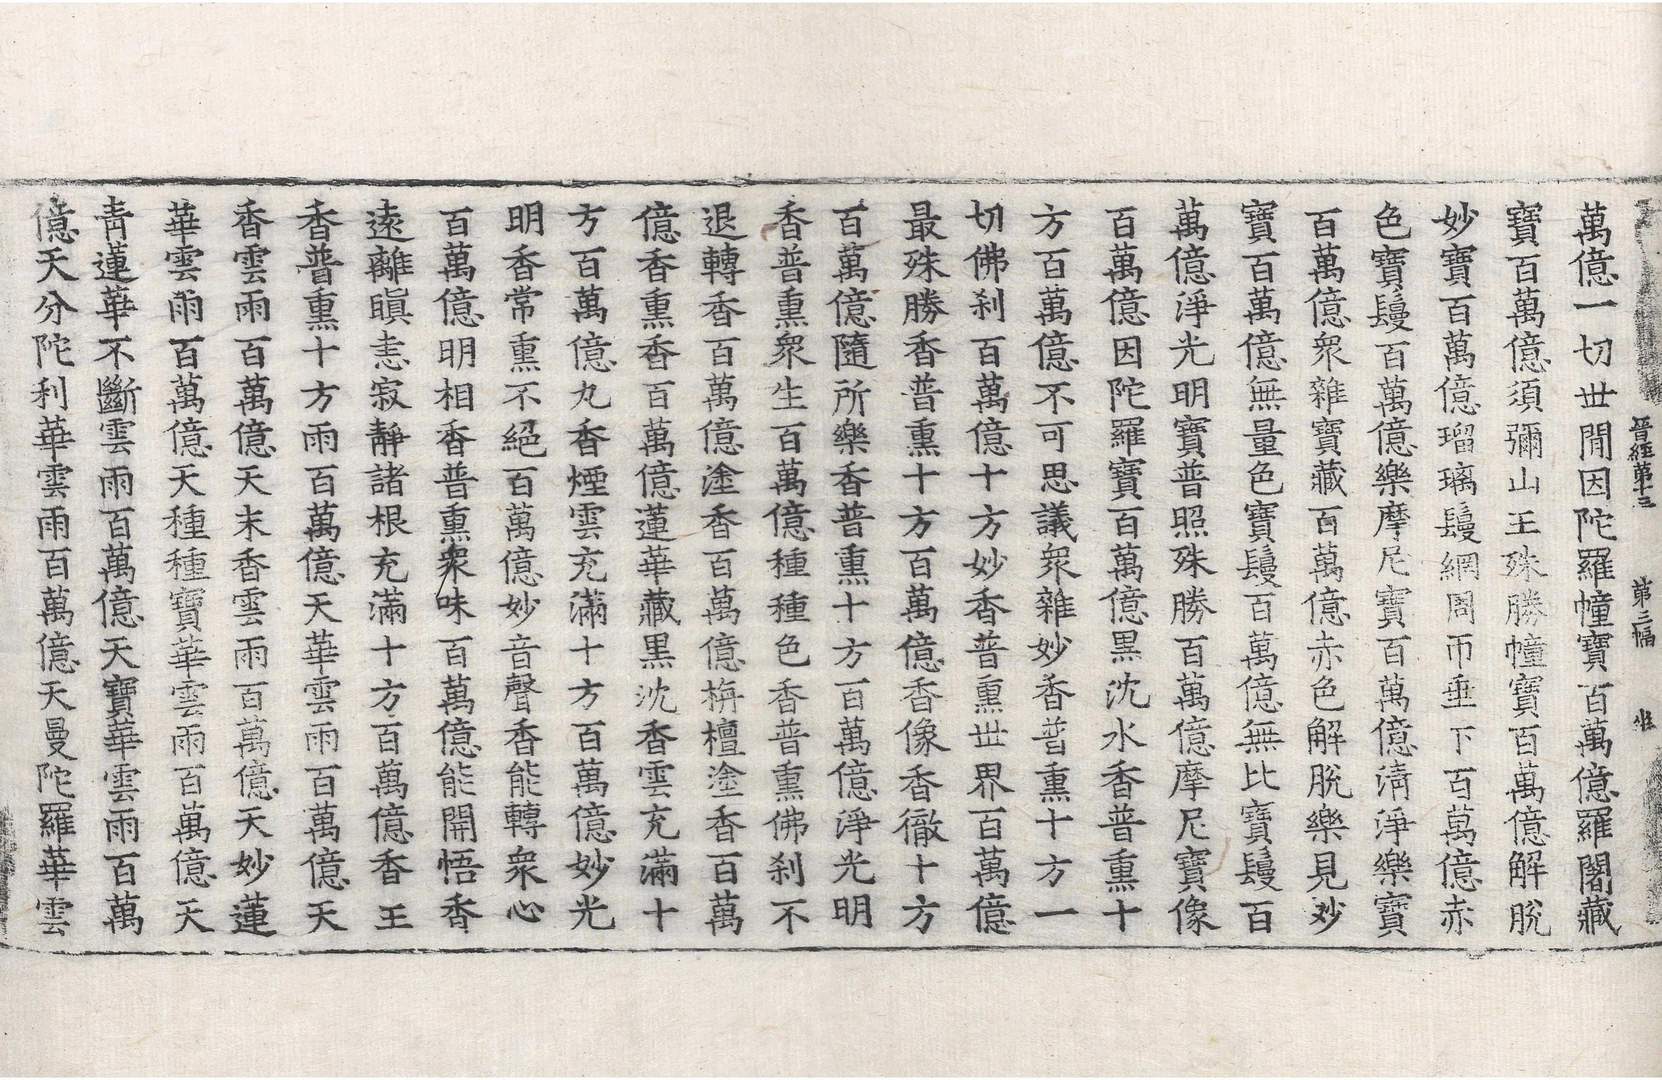 晉經第十三　第三幅
萬億一切世閒因陀羅幢寶百萬億羅閣藏
寶百萬億須彌山王殊勝幢寶百萬億解脫
妙寶百萬億瑠璃鬘網周帀垂下百萬億赤
色寶鬘百萬億樂摩尼寶百萬億淸淨樂寶
百萬億衆雜寶藏百萬億赤色解脫樂見妙
寶百萬億無量色寶鬘百萬億無比寶鬘百
萬億淨光明寶普照殊勝百萬億摩尼寶像
百萬億因陀羅寶百萬億黑沈水香普熏十
方百萬億不可思議衆雜妙香普熏十方一
切佛刹百萬億十方妙香普熏世界百萬億
最殊勝香普熏十方百萬億香像香徹十方
百萬億隨所樂香普熏十方百萬億淨光明
香普熏衆生百萬億種種色香普熏佛刹不
退轉香百萬億塗香百萬億栴檀塗香百萬
億香熏香百萬億蓮華藏黑沈香雲充滿十
方百萬億丸香煙雲充滿十方百萬億妙光
明香常熏不絕百萬億妙音聲香能轉衆心
百萬億明相香普熏衆味百萬億能開悟香
遠離瞋恚寂靜諸根充滿十方百萬億香王
香普熏十方雨百萬億天華雲雨百萬億天
香雲雨百萬億天末香雲雨百萬億天妙蓮
華雲雨百萬億天種種寶華雲雨百萬億天
靑蓮華不斷雲雨百萬億天寶華雲雨百萬
億天分陀利華雲雨百萬億天曼陀羅華雲